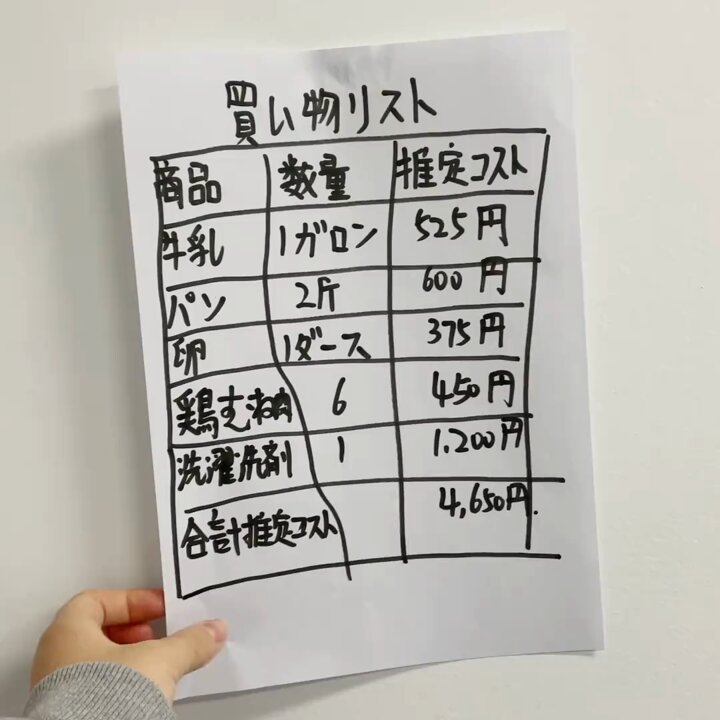 買い物リスト
商品 数量 推定コスト
牛乳 1ガロン 525円
パン 2斤 600円
卵 1ダース 375円
鶏むね肉 6 450円
洗濯洗剤 1 1.200円
合計推定コスト 4,650円.